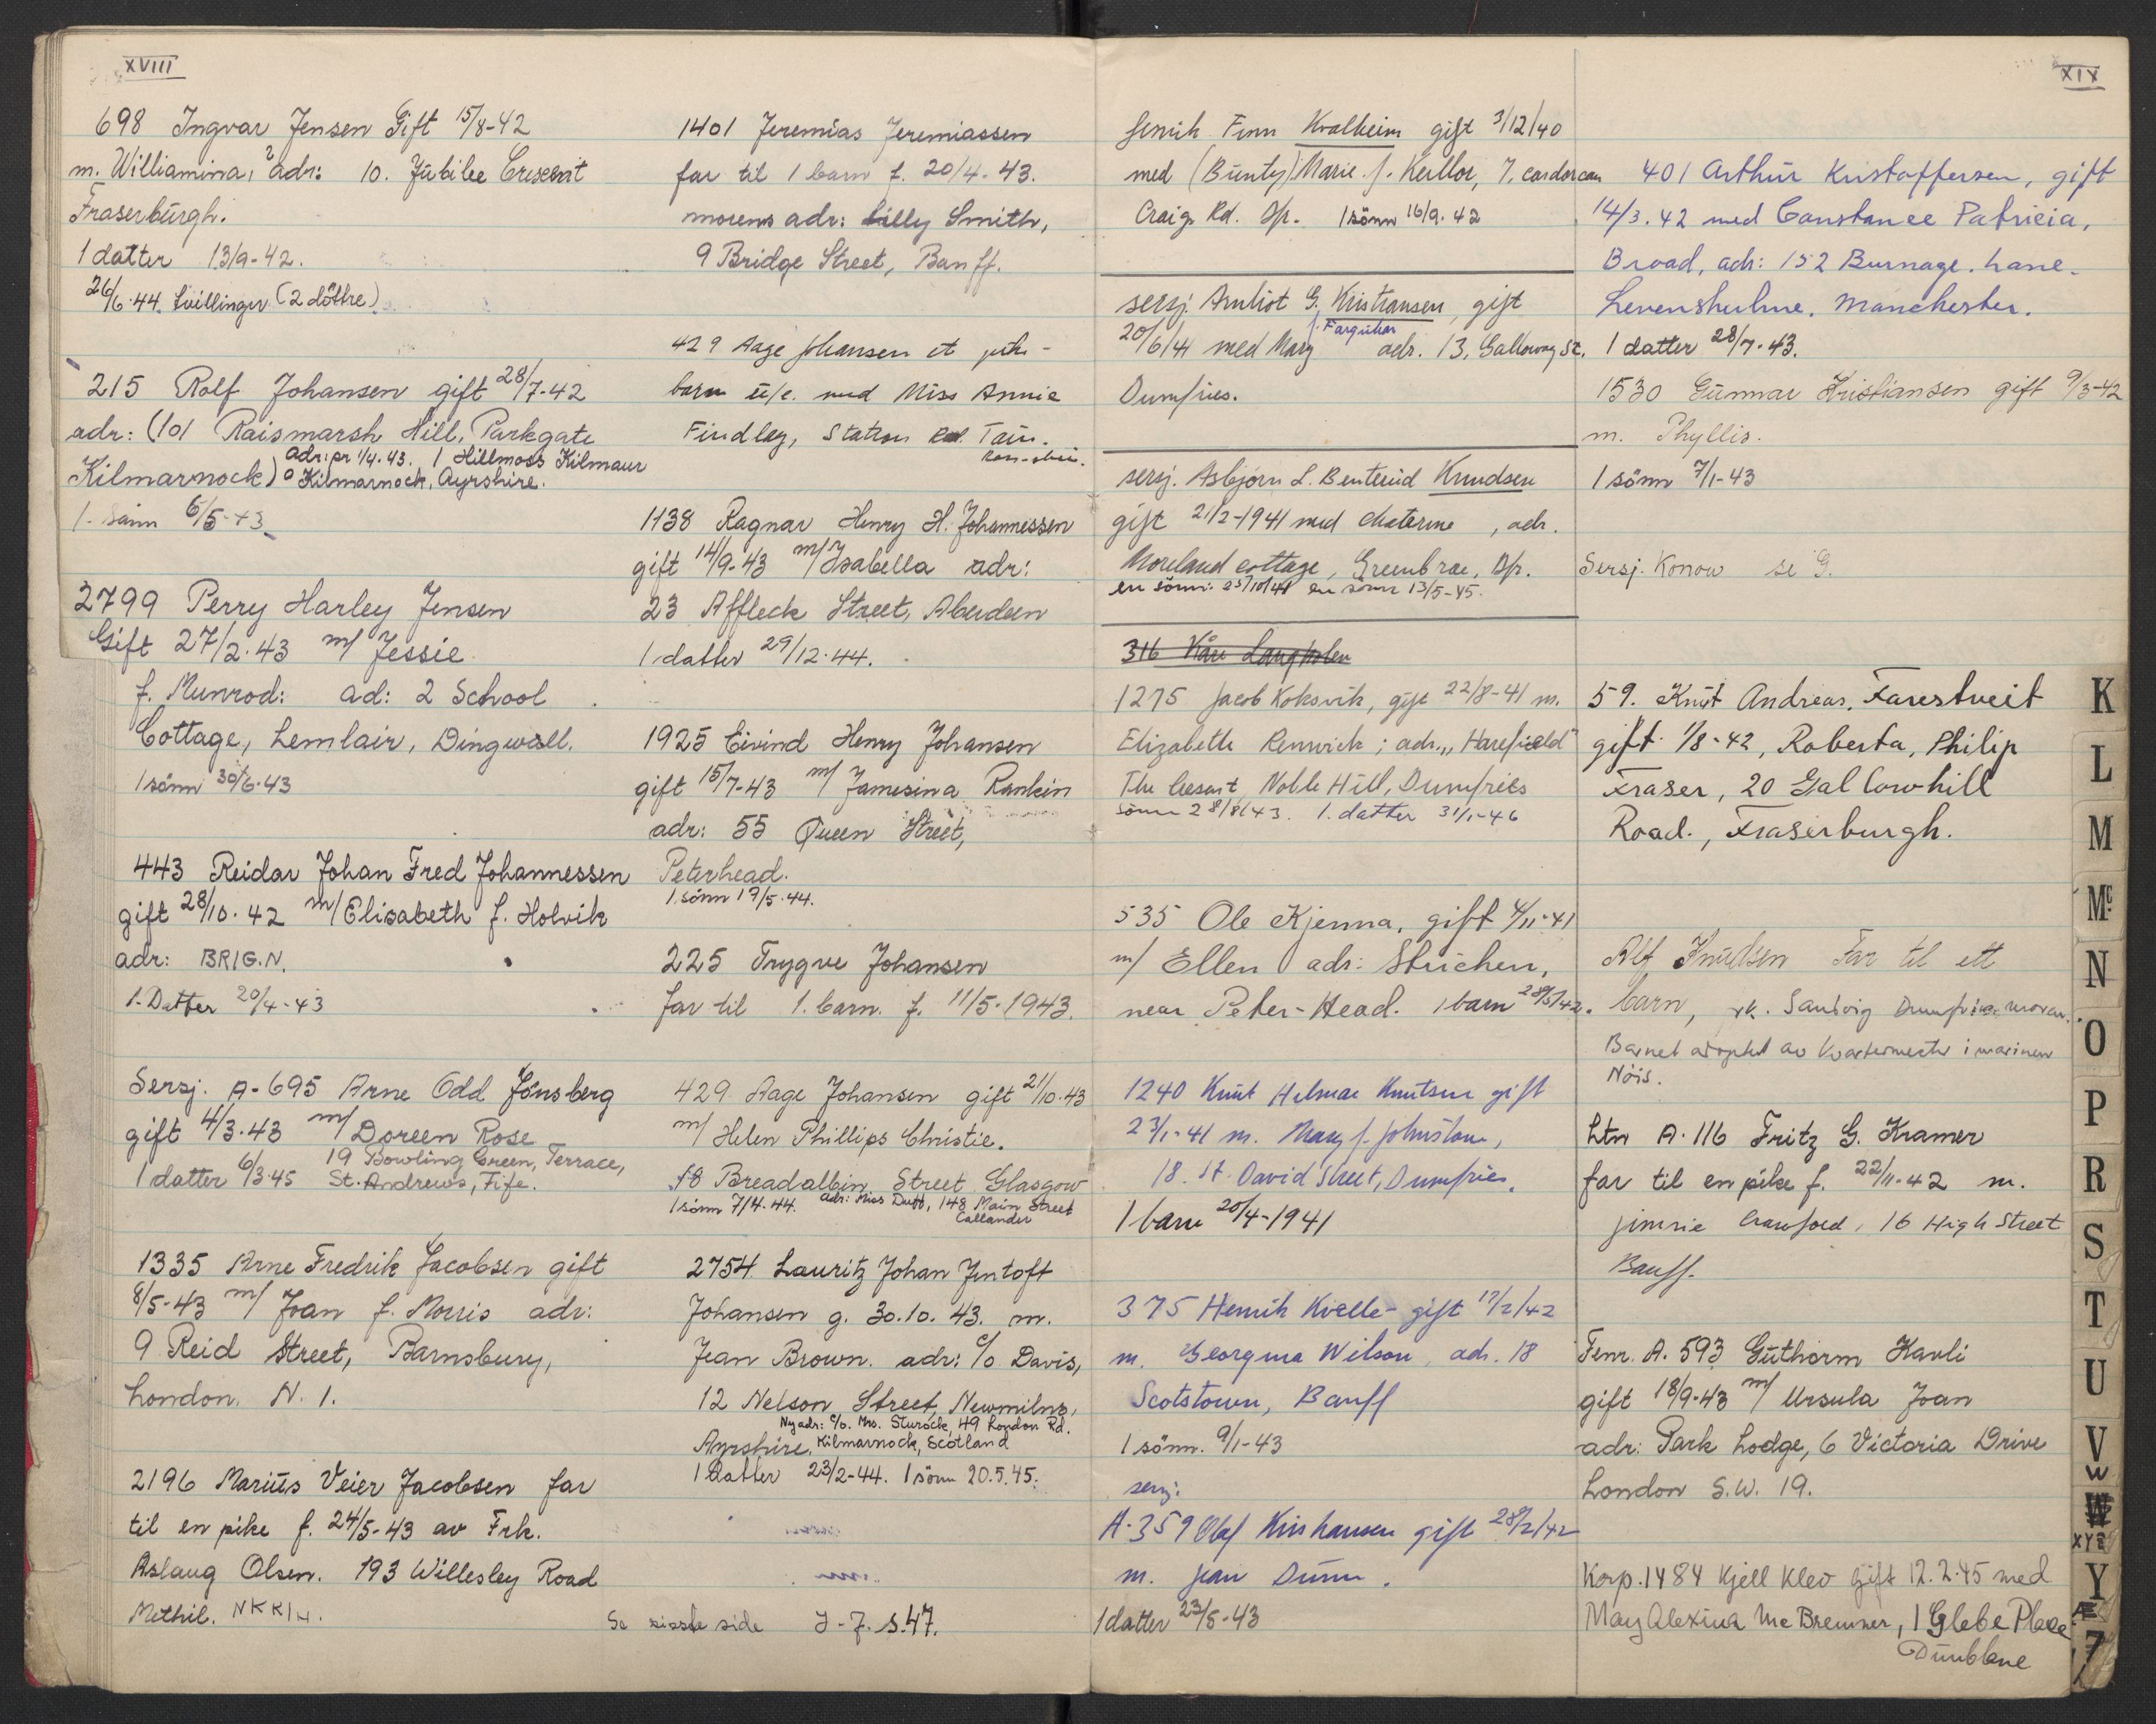 XVIII
698 Ingvar Jensen Gift 15/8-42
m. Williamina, adr: 10. Jubilee Crescent
Fraserburgh.
1 datter 13/9-42.
26/6.44. tvillinger (2 döttre)
215 Rolf Johansen gift 28/7-42
adr: (101 Raismarsh Hill, Parkgate
adr: pr 1/4.43. 1 Hillmoss Kilmaur
Kilmarnock) Kilmarnock, Ayrshire.
1. sönn 6/5-43
2799 Perry Harley Jensen
Gift 27/2.43 m/ Jessie
f. Munrod: ad: 2 School
Cottage, Lemlair, Dingwall.
1 sönn 30/6.43
443 Reidar Johan Fred Johannessen
gift 28/10.42 m/ Elisabeth f. Holvik
adr: BRIG.N.
1. Datter 20/4-43
Sersj. A-695 Arne Odd Jönsberg
gift 4/3.43 m/ Doreen Rose
19 Bowling Green, Terrace,
1 datter 6/3.45 St. Andrews, Fife.
1335 Arne Fredrik Jacobsen gift
8/5-43 m/ Joan f. Morris adr:
9 Reid Street, Barnsbury,
London. N. 1.
2196 Marius Veier Jacobsen far
til en pike f. 24/5-43 av Frk.
Aslaug Olsen. 193 Willesley Road
Methil. NKKIH.
1401 Jeremias Jeremiassen
far til 1 barn f. 20/4-43.
morens adr: Lilly Smith,
9 Bridge Street, Banff.
429 Aage Johansen et
barn u/e. med Miss Annie
Findlay, Station Rd. Tain.
1138 Ragnar Henry H. Johannessen
gift 14/9-43 m/ Isabella adr:
23 Affleck Street, Aberdeen
1 datter 29/12.44.
1925 Eivind Henry Johansen
gift 15/7-43 m/ Jamesina Rankin
adr: 55 Queen Street,
Peterhead.
1 sönn 17/5.44.
225 Trygve Johansen
far til 1. barn. f. 11/5-1943.
429 Aage Johansen gift 21/10.43
m/ Helen Phillips Christie.
18 Breadalbin Street Glasgow
1 sönn 7/4.44. adr: Miss Duff, 148 Main Street
Callander
2754 Lauritz Johan Jentoft
Johansen g. 30.10.43. m.
Jean Brown. adr: c/o Davis,
12 Nelson Street, Newmilns,
Ny adr: c/o. Mrs. Sturock, 49 London Rd.
Ayrshire. Kilmarnock, Scotland
1 datter 23/2-44. 1 sönn 20.5.45.
Se siste side J-J. s.47.
XIX
fenrik Finn Kvalheim gift 3/12/40
med (Bunty) Marie f. Kerllor, 7.
Craig. Rd. Dfr. 1 sönn 16/9.42
sersj. Arnliot G. Kristiansen, gift
f. Farquhar
20/6/41 med Mary adr. 13, Galloway St.
Dumfries.
sersj. Asbjørn L. Benterud Knudsen
gift 21/2-1941 med Chaterine, adr.
Moreland cottage, Greenbrae, Dfr.
en sönn: 25/10/41 en sönn 13/5-45.
316 Kåre Langholen
1275 Jacob Koksvik, gift 22/8-41 m.
Elizabeth Renwick; adr. "Harefield"
The Cresent, Noble Hill, Dumfries
sönn 28/8/43. 1. datter 31/1-46
535 Ole Kjenna, gift 4/11-41
m/ Ellen adr: Strichen,
near Peter-Head. 1 barn 28/5/42.
1240 Knut Helmar Knutsen gift
23/1-41 m. Mary f. Johnstone,
18. St. David Street, Dumfries.
1 barn 20/4-1941
375 Henrik Kvelle- gift 17/2/42
m. Georgina Wilson, adr. 18
Scotstown, Banff
1 sönn. 9/1-43
sersj.
A-359 Olaf Kristiansen gift 28/2/42
m. Jean Dunn.
1 datter 23/5-43
401 Arthur Kristoffersen, gift
14/3.42 med Constance Patricia,
Broad, adr: 152 Burnage. Lane.
Levenshulme. Manchester.
1 datter 28/7-43.
1530 Gunnar Kristiansen gift 9/3-42
m. Phyllis.
1 sönn 7/1-43
Sersj. Konow se G.
59. Knut Andreas. Farestveit
gift 1/8-42, Roberta, Philip
Fraser, 20 Gallowhill
Road., Fraserburgh.
Alf Knudsen Far til ett
barn, Sandvig Dumfries
Barnet adoptet av Kvartermester i marinen
Nöis.
Ltn A.116 Fritz G. Kramer
far til en pike f. 22/11-42 m.
Jimsie Crawford, 16 High Street
Banff.
Fenr. A. 593 Guthorm Kavli
gift 18/9-43 m/ Ursula Joan
adr: Park Lodge, 6 Victoria Drive
London S.W. 19.
Korp. 1484 Kjell Klev gift 12.2.45 med
May Alexina Mc Bremner, 1 Glebe Place
Dunblane
K
L
M
Mc
N
O
P
R
S
T
U
V
W
W
XYZ
Y
Æ
Z